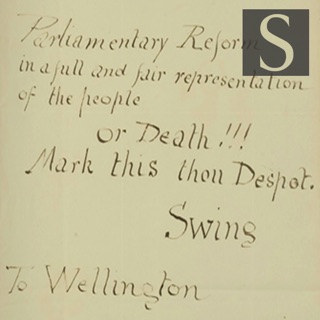 Parliamentary Reform
in a full and fair representation
of the people
or Death!!!
Mark this thou Despot.
Swing
To Wellington
S